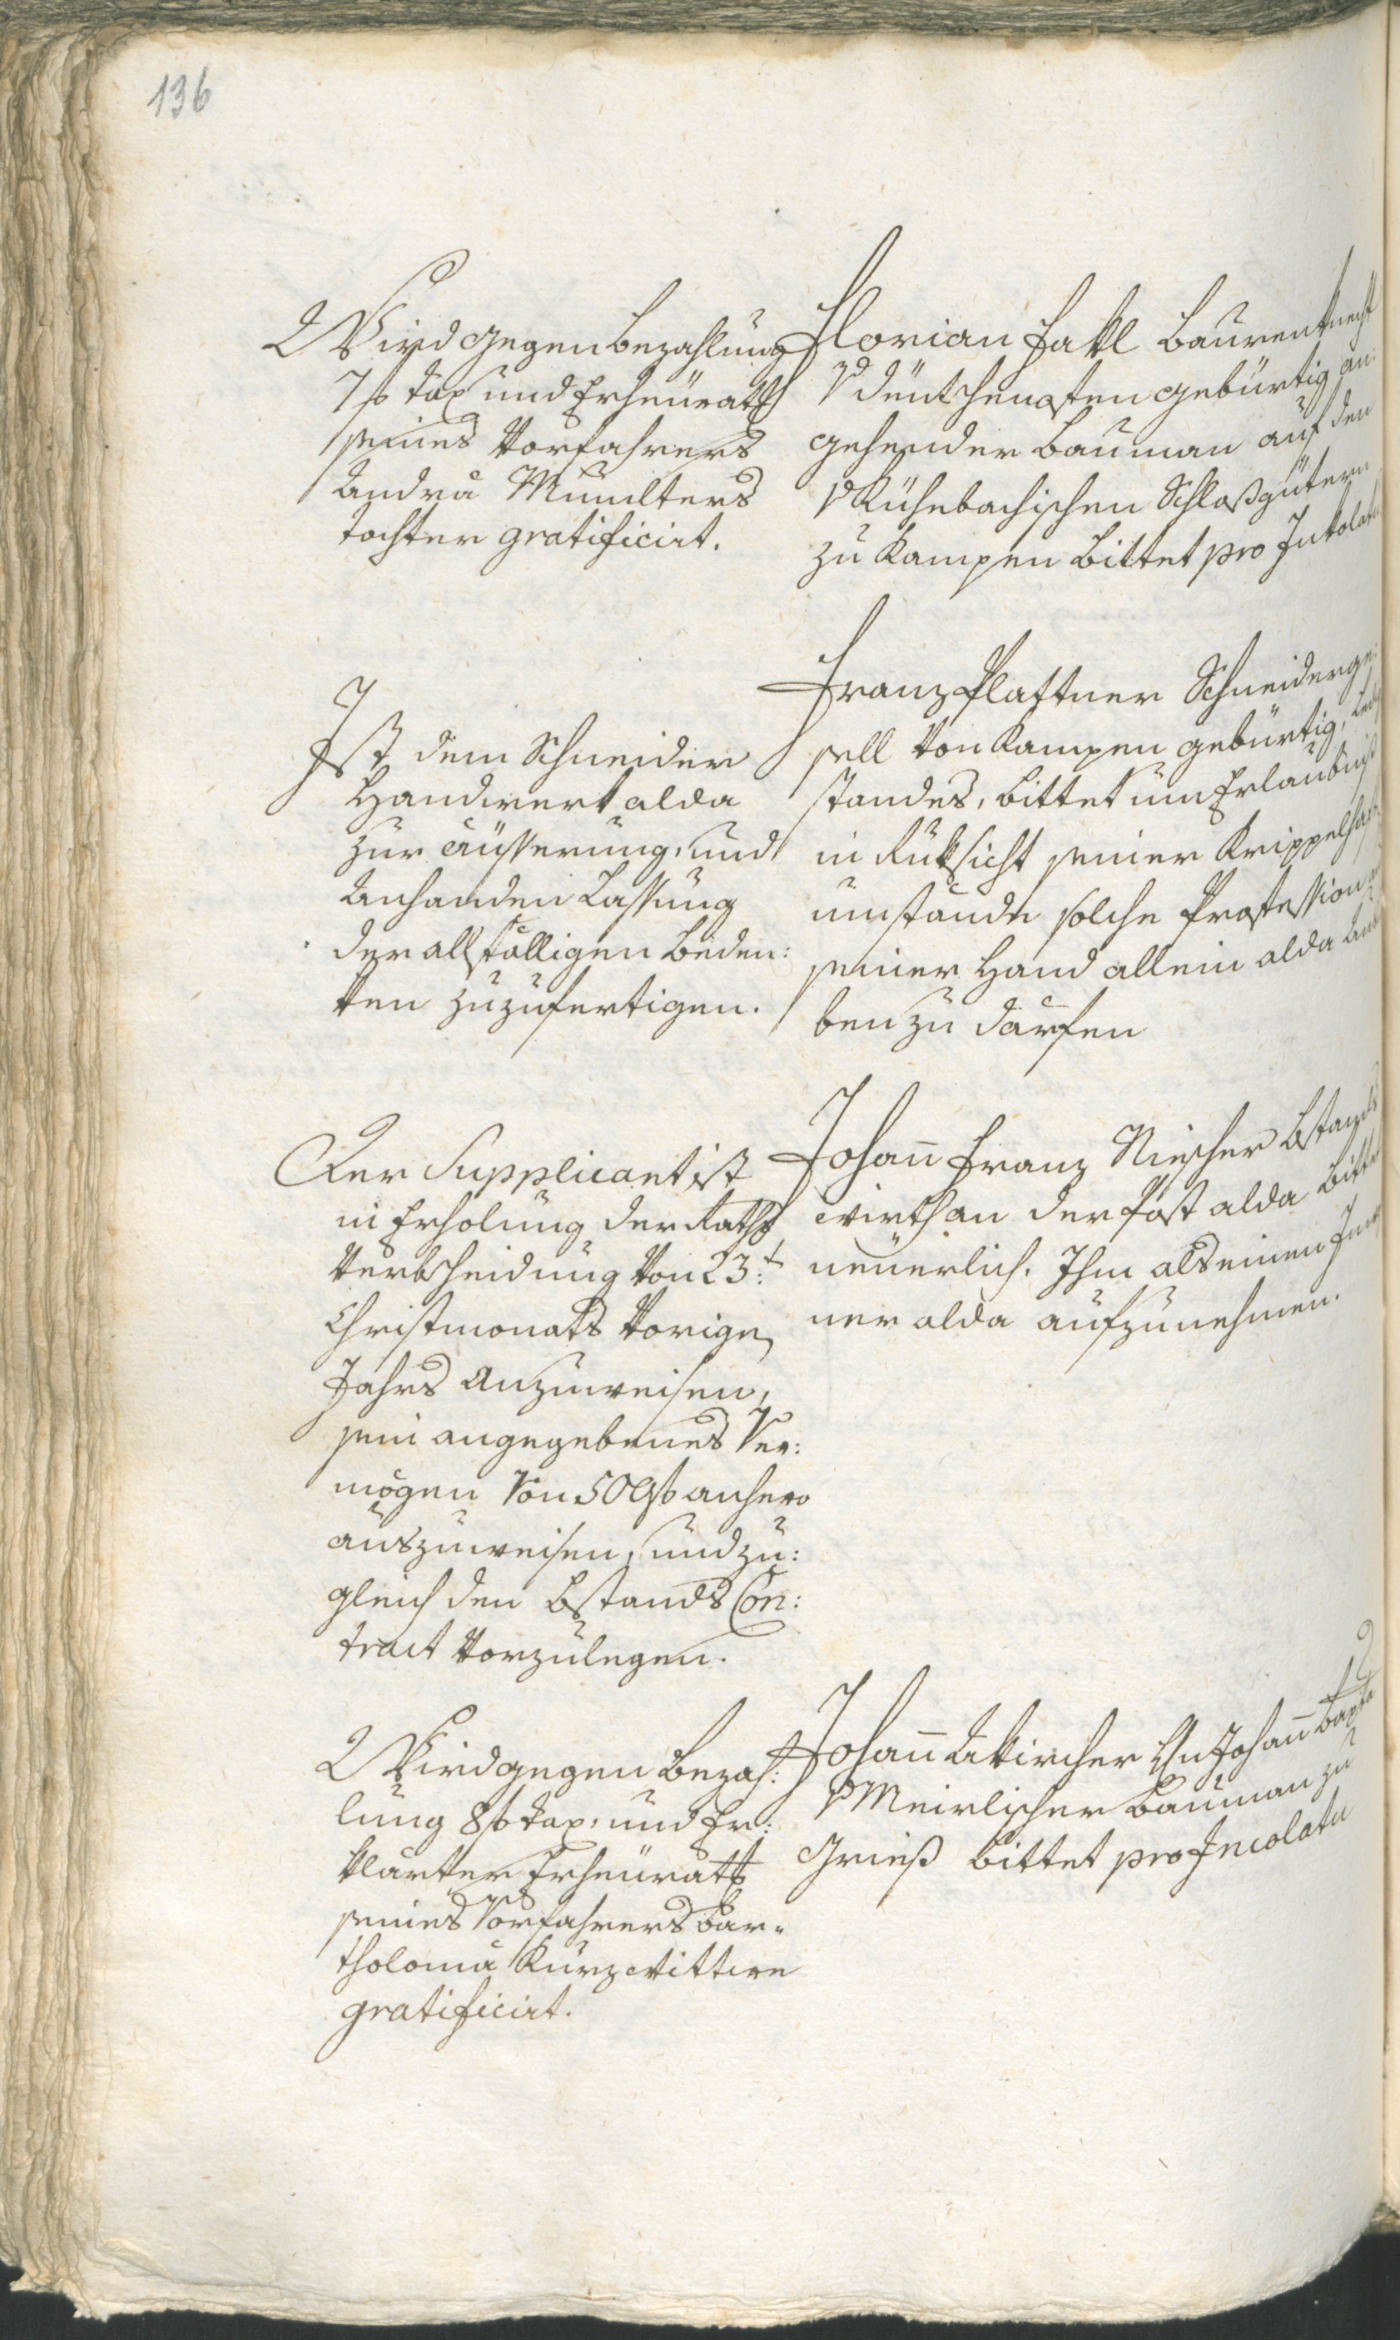 136
Wird gegen Bezahlung
7 f Tax und Erheurath
seines Vorfahrers
Andrä Mumlters
Tochter gratificirt.
Florian Fakl Baurenknecht
v Deutschenofen gebürtig an:
gehender Bauman auf den
v Kühebachischen Schloßgütern
zu Kampen bittet pro Inkolatu
Ist dem Schneider
Handwerk alda
zur Äusserung, und
Anhanden Lassung
der allfälligen Beden:
ken zuzufertigen.
Franz Plattner Schneiderge:
sell von Kampen gebürtig,
standes, bittet um Erlaubniß
in Rüksicht seiner Krippelhaften
umstände solche Profession
seiner Hand allein alda
ben zu därfen
Der Supplicant ist
in Erholung der Raths
Verbscheidung von 23:t
Christmonats vorigen
Jahrs anzuweisen,
sein angegebenes Ver:
mögen von 500 f anhero
auszuweisen, und zu:
gleich den Bstands Con:
tract vorzulegen.
Johann Franz Niescher Bstands
wirth an der Post alda bittet
neuerlich. Ihm als einen In
ner alda aufzunehmen.
Wird gegen Bezah:
lung 8 f Tax, und Er:
klärter Erheurath
seines Vorfahrers Bar=
tholomä Kurz Wittwe
gratificirt.
Johann Unkircher Hn Johann Bapta
v Meirlischer Bauman zu
Grieß bittet pro Incolatu